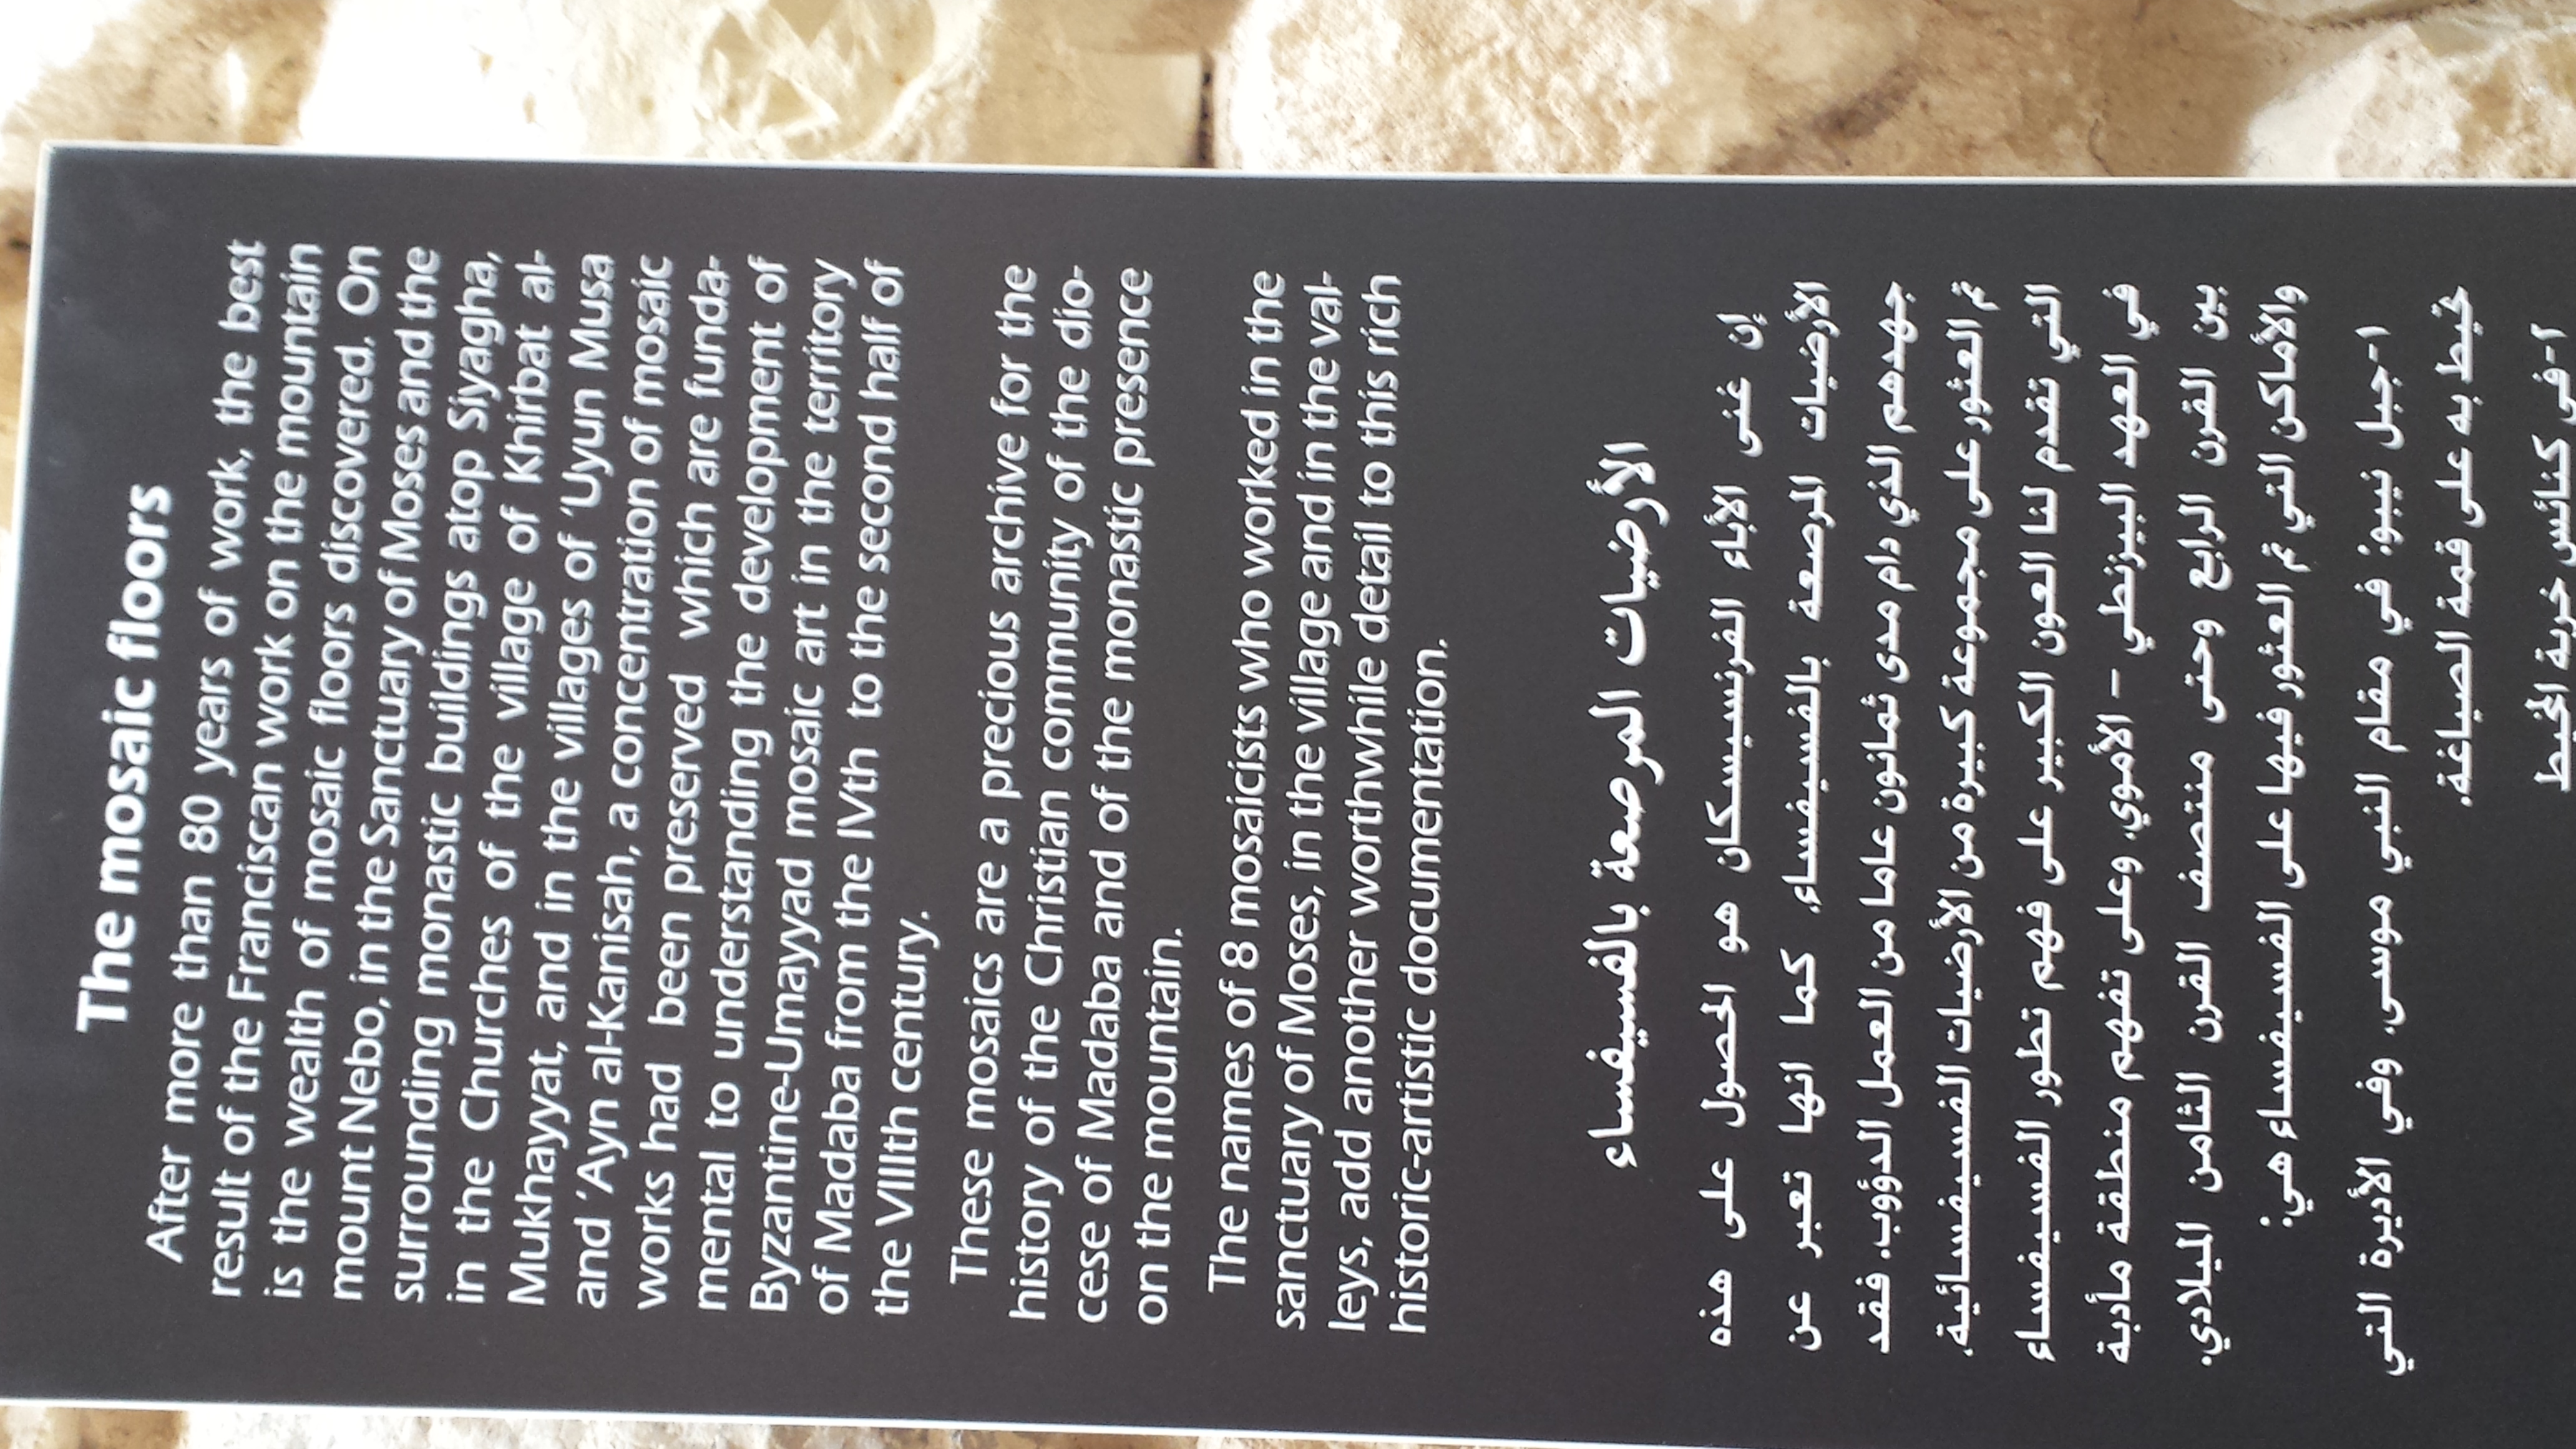 The mosaic floors
After more than 80 years of work, the best
result of the Franciscan work on the mountain
is the wealth of mosaic floors discovered. On
mount Nebo, in the Sanctuary of Moses and the
surrounding monastic buildings atop Siyagha,
in the Churches of the village of Khirbat al-
Mukhayyat, and in the villages of 'Uyun Musa
and 'Ayn al-Kanisah, a concentration of mosaic
works had been preserved which are funda-
mental to understanding the development of
Byzantine-Umayyad mosaic art in the territory
of Madaba from the IVth to the second half of
the VIIIth century.
These mosaics are a precious archive for the
history of the Christian community of the dio-
cese of Madaba and of the monastic presence
on the mountain.
The names of 8 mosaicists who worked in the
sanctuary of Moses, in the village and in the val-
leys, add another worthwhile detail to this rich
historic-artistic documentation.
الأرضيات المرصعة بالفسيفساء
إن غنى الأباء الفرنسيسكان هو الحصول على هذه
الأرضيات المرصعة بالفسيفساء، كما انها تعبر عن
جهدهم الذي دام مدى ثمانون عاما من العمل الدؤوب. فقد
تم العثور على مجموعة كبيرة من الأرضيات الفسيفسائية.
التي تقدم لنا العون الكبير على فهم تطور الفسيفساء
في العهد البيزنطي - الأموي. وعلى تفهم منطقة مأدبة
بين القرن الرابع وحتى منتصف القرن الثامن الميلادي.
والأماكن التي تم العثور فيها على الفسيفساء هي:
١-جبل نيبو: في مقام النبي موسى. وفي الأديرة التي
تحيط به على قمة الصياغة.
١-في كنائس خربة المخيط